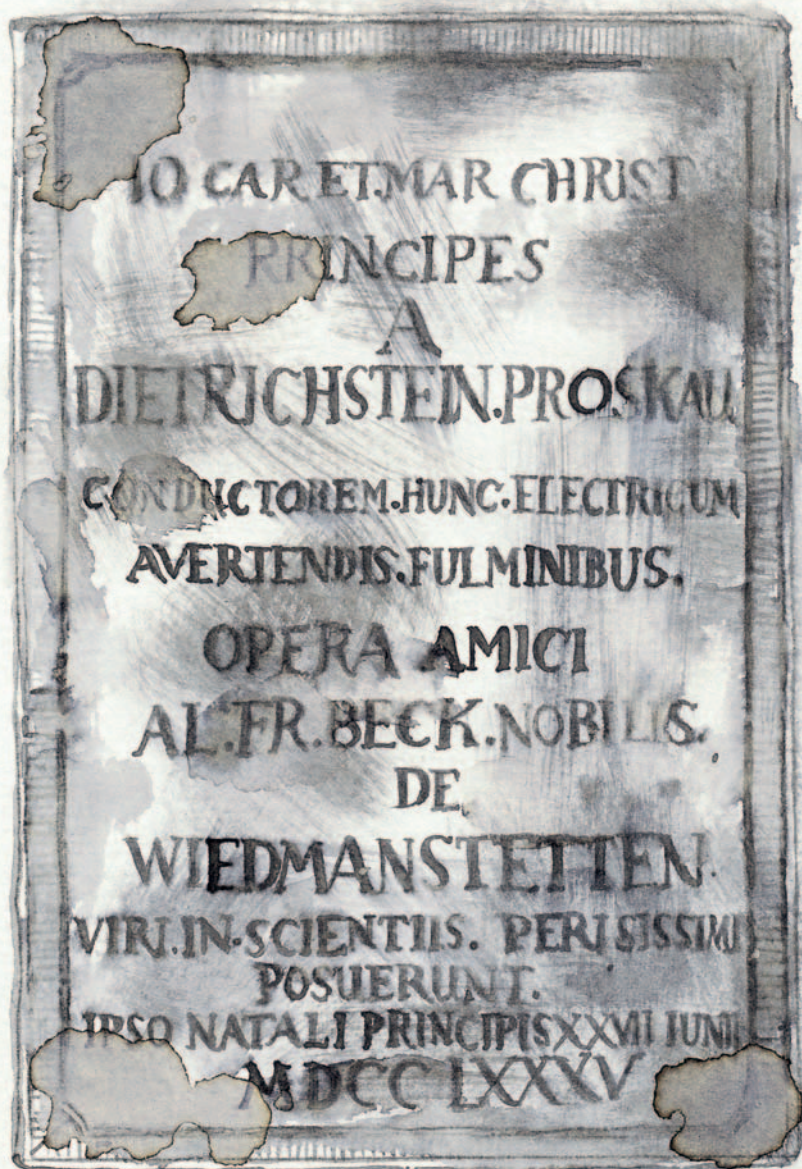 IO CAR ET.MAR CHRIST
PRINCIPES
A
DIETRICHSTEIN.PRO.SKAU.
CONDUCTOREM.HUNC.ELECTRICUM
AVERTENDIS.FULMINIBUS.
OPERA AMICI
AL.FR.BECK.NOBILIS.
DE
WIEDMANSTETTEN.
VIRI.IN.SCIENTIIS. PERISISSIMI
POSUERUNT.
IPSO NATALI PRINCIPIS XXVII IUNII
MDCCLXXXV